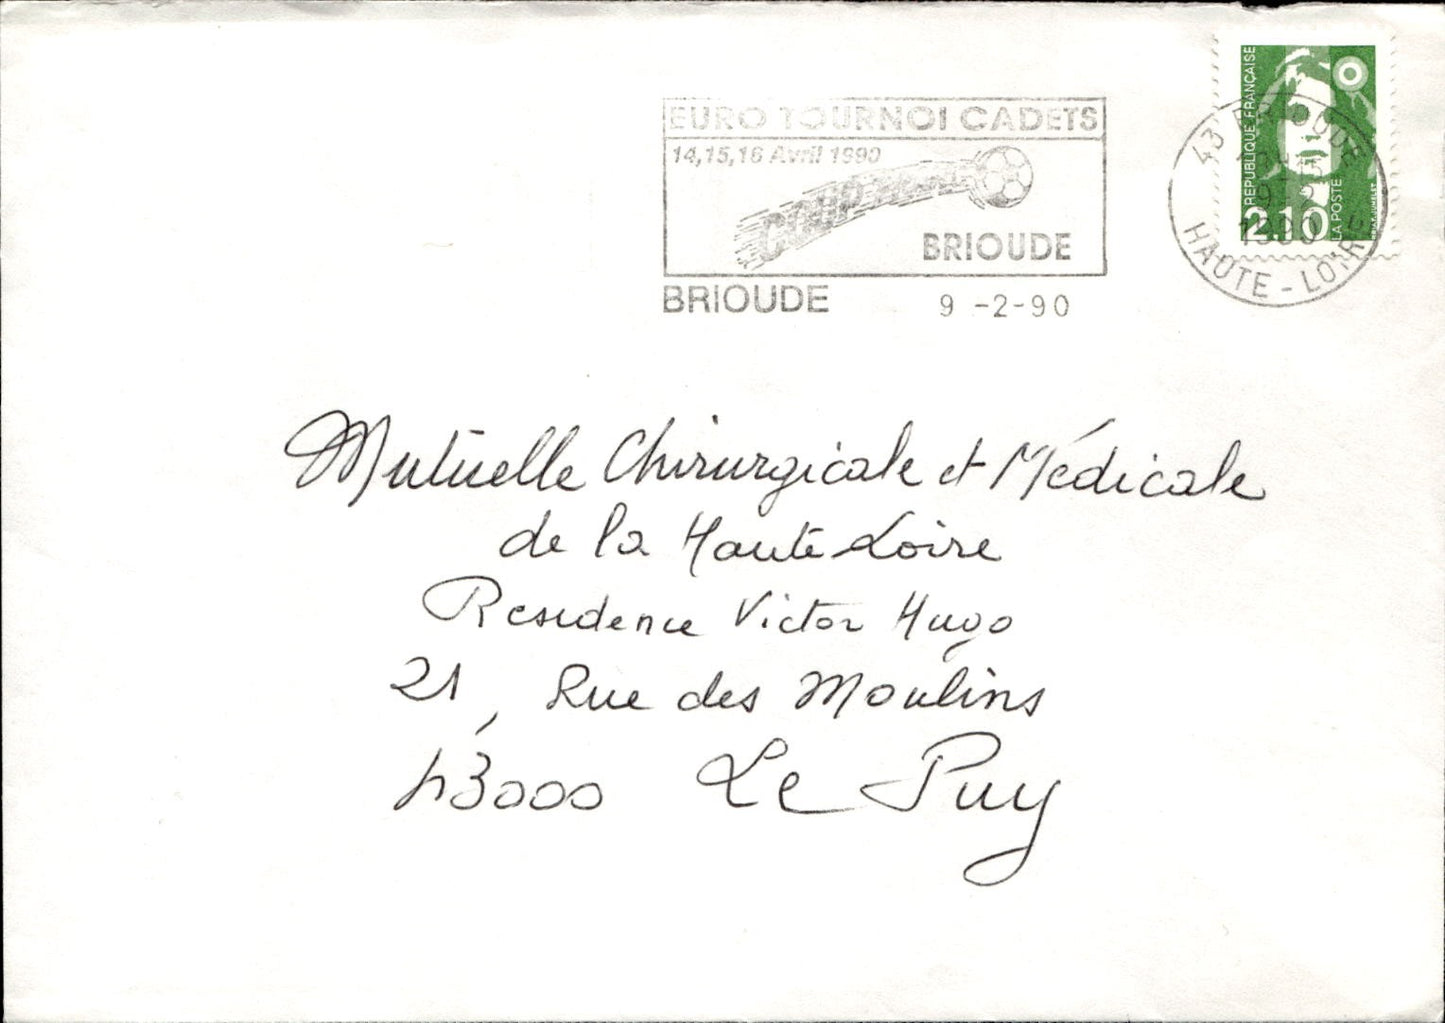 EURO TOURNOI CADETS
14,15,16 Avril 1990
BRIOUDE
BRIOUDE 9 -2-90
RÉPUBLIQUE FRANÇAISE
2.10
LA POSTE
43 BRIOUDE
1990
HAUTE - LOIRE
Mutuelle Chirurgicale et Médicale
de la Haute Loire
Residence Victor Hugo
21, Rue des Moulins
43000 Le Puy